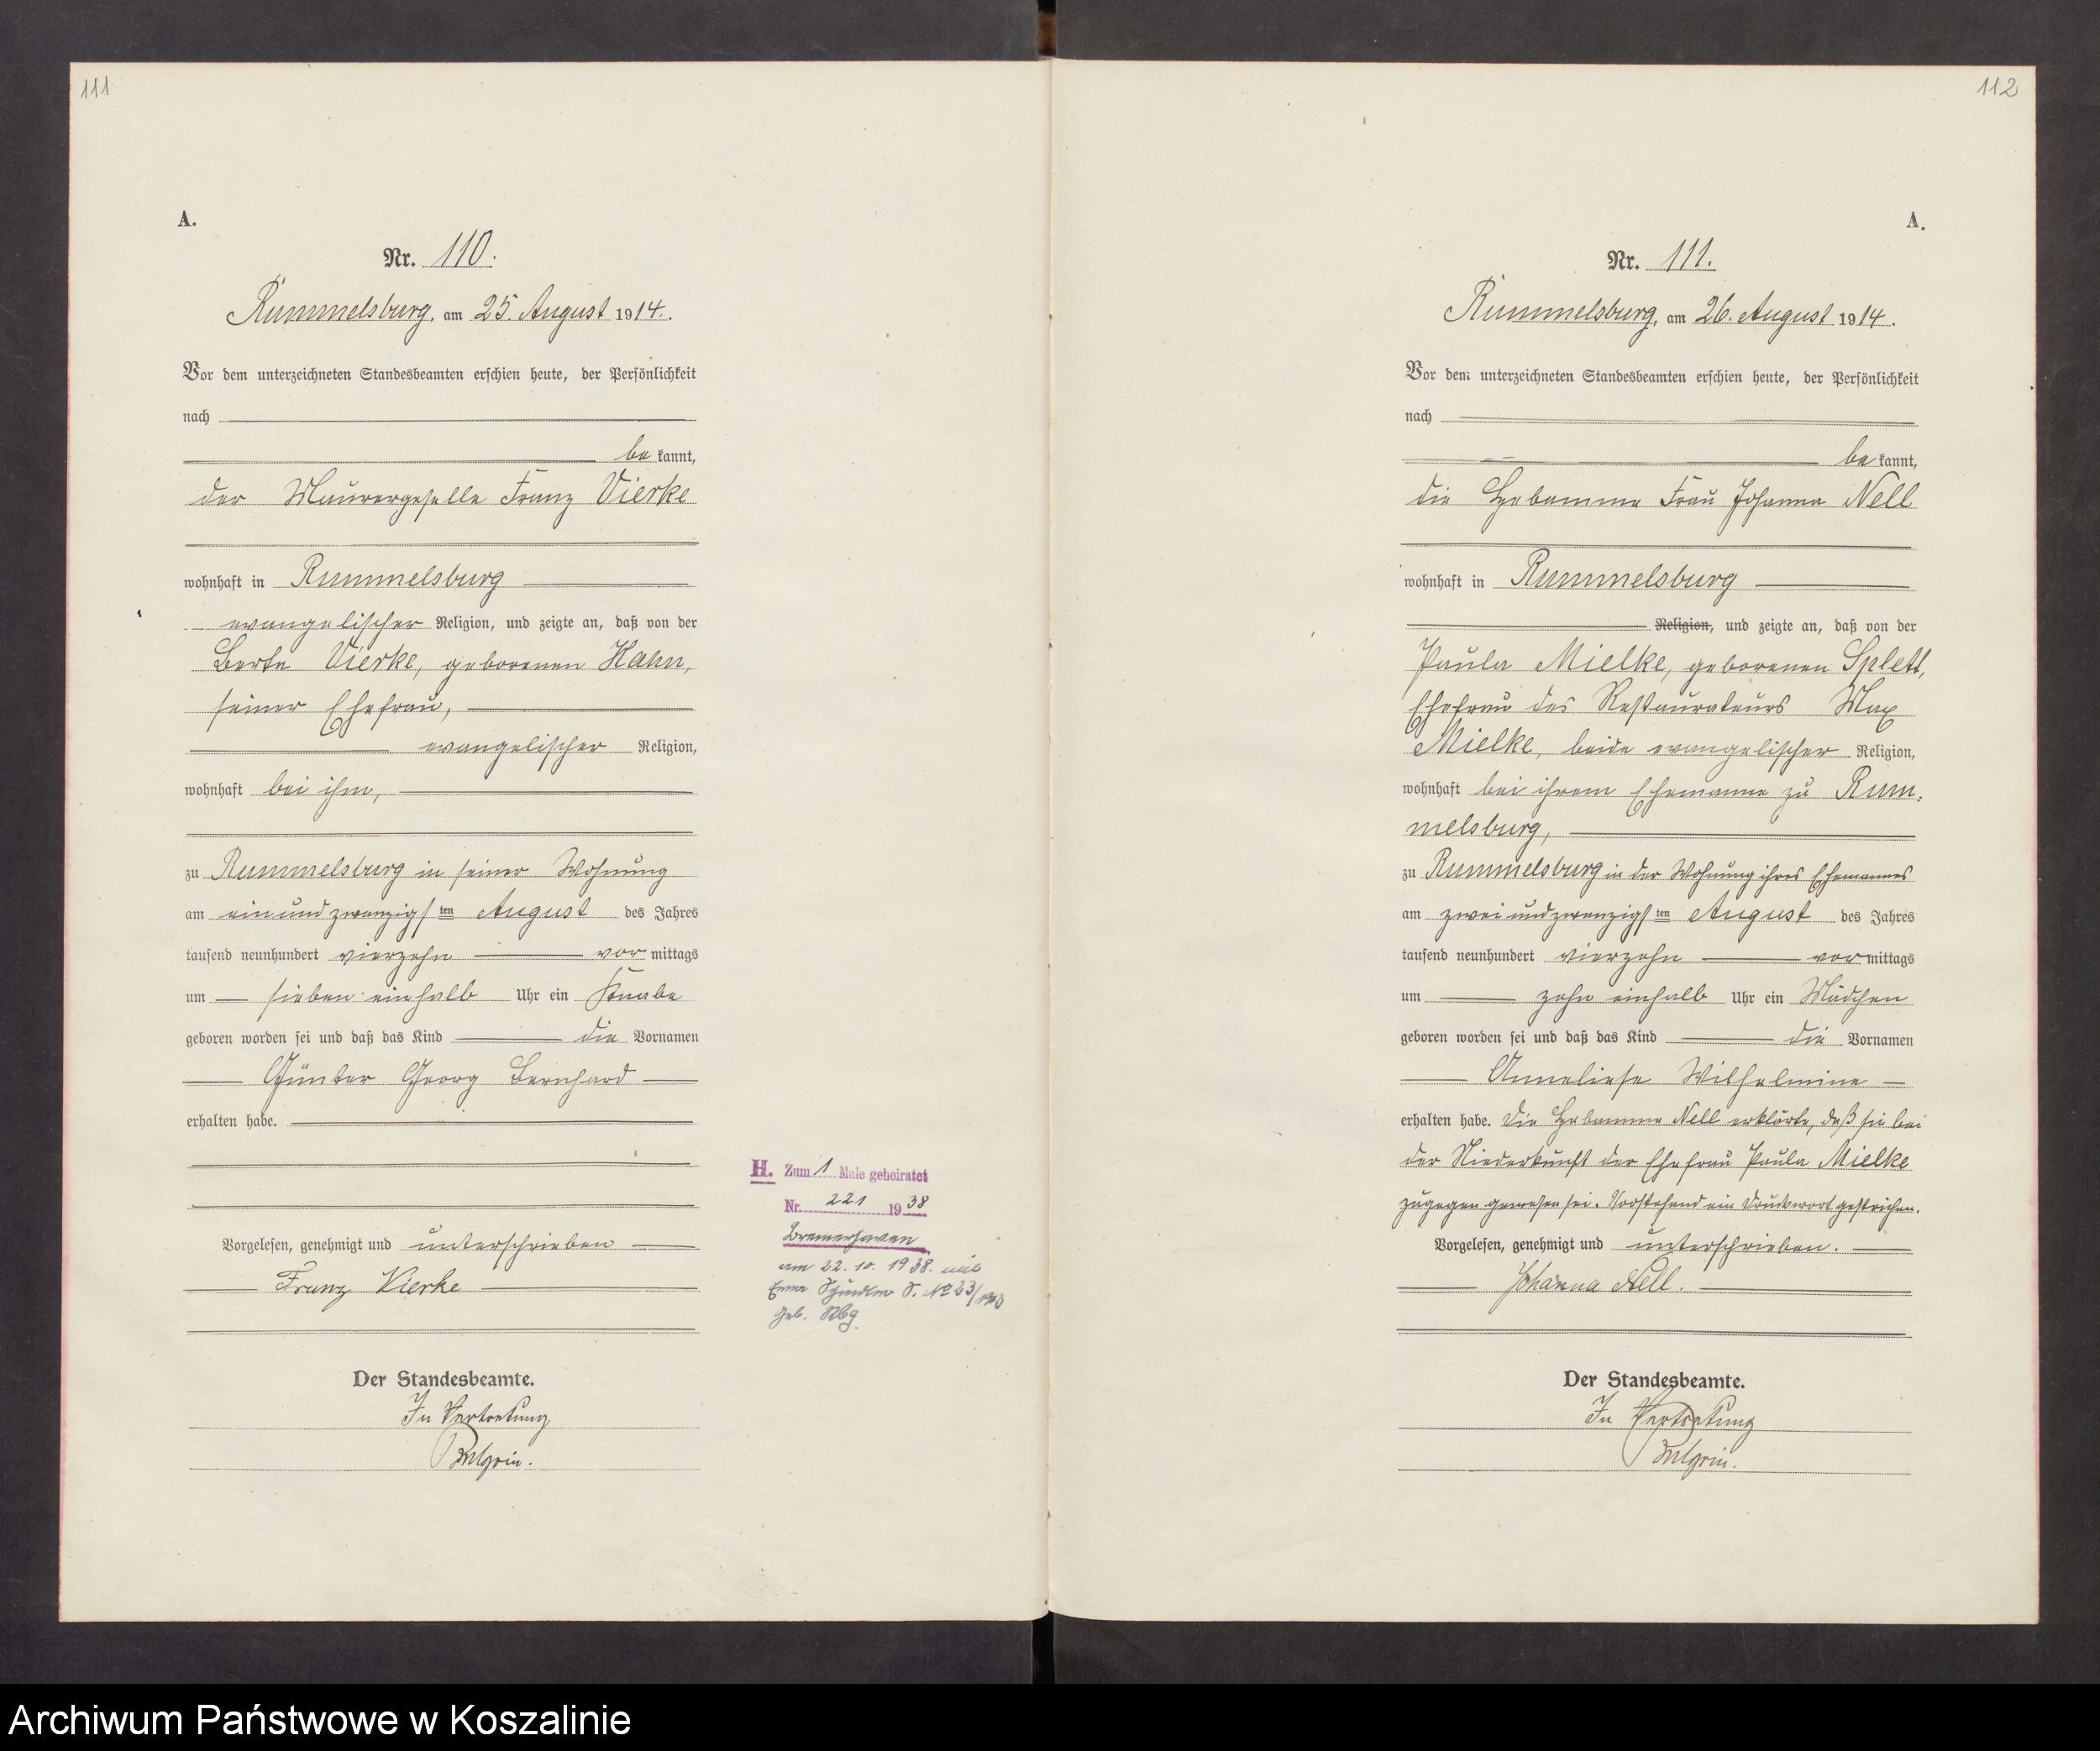 111
A.
Nr. 110.
Rummelsburg, am 25. August 1914.
Vor dem unterzeichneten Standesbeamten erschien heute, der Persönlichkeit
nach
be kannt,
der Maurergeselle Franz Vierke
wohnhaft in Rummelsburg
evangelischer Religion, und zeigte an, daß von der
Berta Vierke, geborenen Hahn,
seiner Ehefrau,
evangelischer Religion,
wohnhaft bei ihm,
zu Rummelsburg in seiner Wohnung
am ein und zwanzigsten August des Jahres
tausend neunhundert vierzehn vor mittags
um sieben einhalb Uhr ein Knabe
geboren worden sei und daß das Kind die Vornamen
Günter Georg Bernhard
erhalten habe.
Vorgelesen, genehmigt und unterschrieben
Franz Vierke
Der Standesbeamte.
In Vertretung
H. Zum 1 Male geheiratet
Nr. 221 1938
Bremerhaven
am 22. 10. 1938. mit
Geb. Rbg.
112
A.
Nr. 111.
Rummelsburg, am 26. August 1914.
Vor dem unterzeichneten Standesbeamten erschien heute, der Persönlichkeit
nach
be kannt,
die Hebamme Frau Johanna Nell
wohnhaft in Rummelsburg
Religion, und zeigte an, daß von der
Paula Mielke, geborenen Splett,
Ehefrau des Restaurateurs Max
Mielke, beide evangelischer Religion,
wohnhaft bei ihrem Ehemanne zu Rum-
melsburg,
zu Rummelsburg in der Wohnung ihres Ehemannes
am zwei und zwanzigsten August des Jahres
tausend neunhundert vierzehn vormittags
um zehn einhalb Uhr ein Mädchen
geboren worden sei und daß das Kind die Vornamen
Anneliese Wilhelmine
erhalten habe. Die Hebamme Nell erklärte, daß sie bei
der Niederkunft der Ehefrau Paula Mielke
zugegen gewesen sei. Vorstehend ein Druckwort gestrichen.
Vorgelesen, genehmigt und unterschrieben.
Johanna Nell.
Der Standesbeamte.
In Vertretung
Archiwum Państwowe w Koszalinie